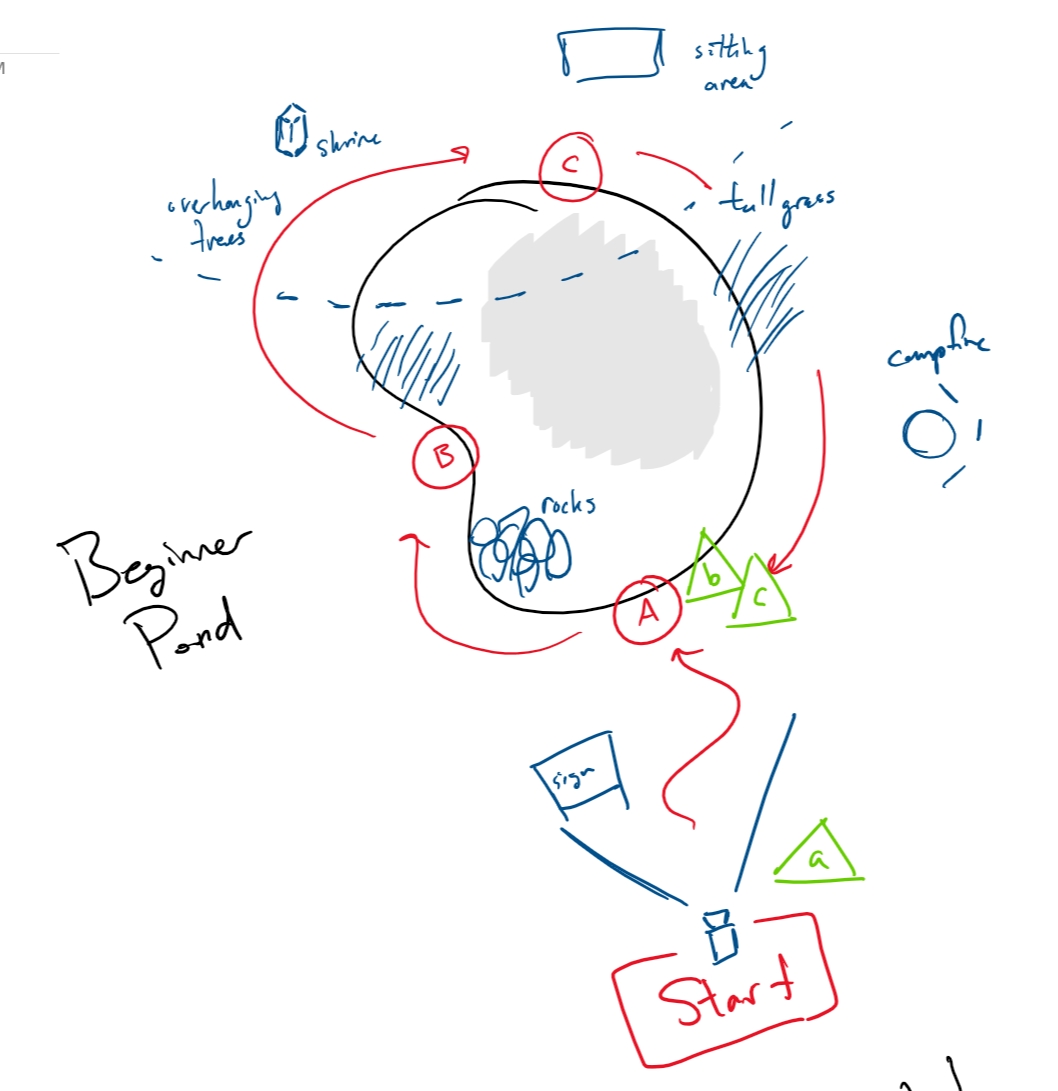 M
sitting
area
shrine
C
overhanging
trees
tall grass
campfire
B
rocks
Beginner
Pond
b
c
A
sign
a
Start